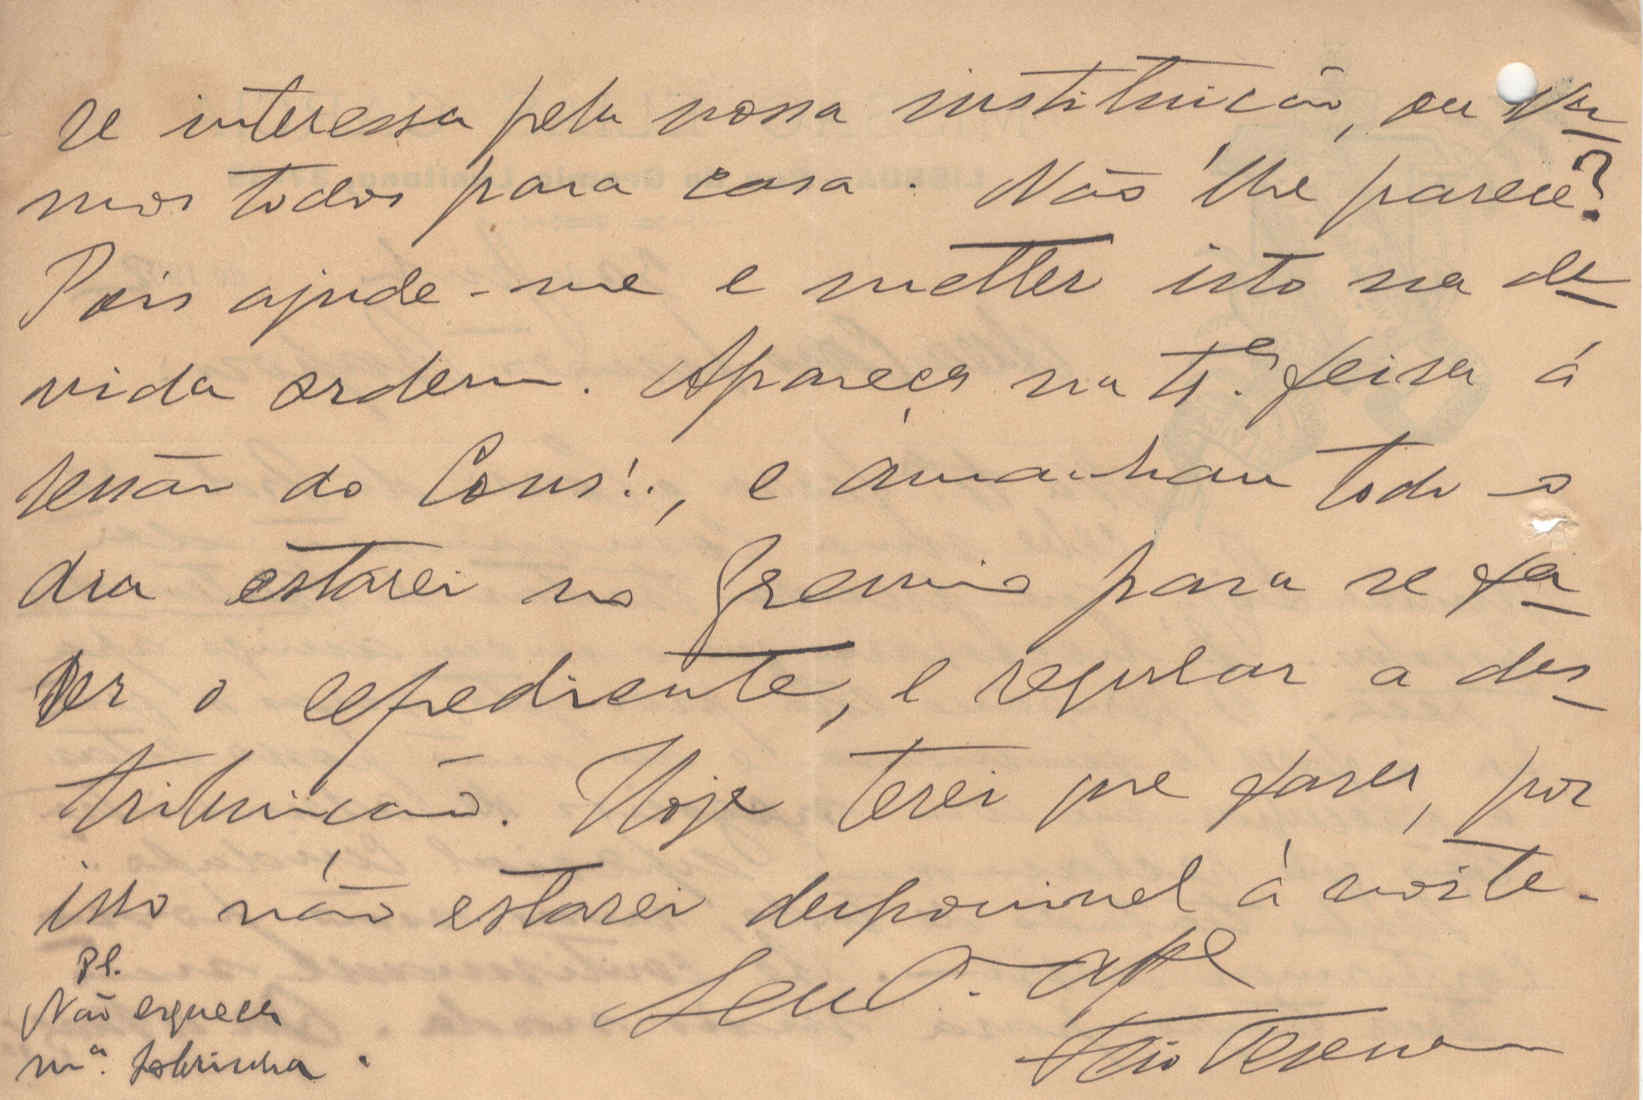 se interessa pela nossa instituição, ou va-
mos todos para casa. Não lhe parece?
Pois ajude-me e metter isto na de-
vida ordem. Apareça na 4.ª feira á
sessão do Cons∴, e ámanhan todo o
dia estarei no Gremio para se fa-
zer o expediente, e regular a des-
tribuição. Hoje terei que fazer, por
isso não estarei desponivel á noite.
Seu
Não esqueça
m.ª sobrinha.